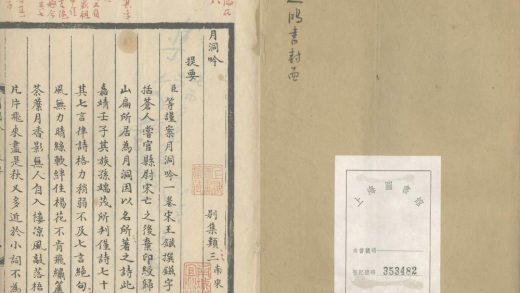 鴻書封面
上海圖書館
登記號碼 353482
月洞吟
提要
別集類三 南宋
臣等謹案月洞吟一卷宋王鎡撰鎡字
括蒼人嘗官縣尉宋亡之後棄印綬歸
山扁所居為月洞因以名所著之詩此
嘉靖壬子其族孫端茂所刊僅詩七十
其七言律詩格力稍弱不及七言絕句
風無力晴絲軟絆住楊花不肯飛繡簾
茶葉月香影無人自入樓涼風敲落梧
片片飛來盡是秋又多近於小詞不為